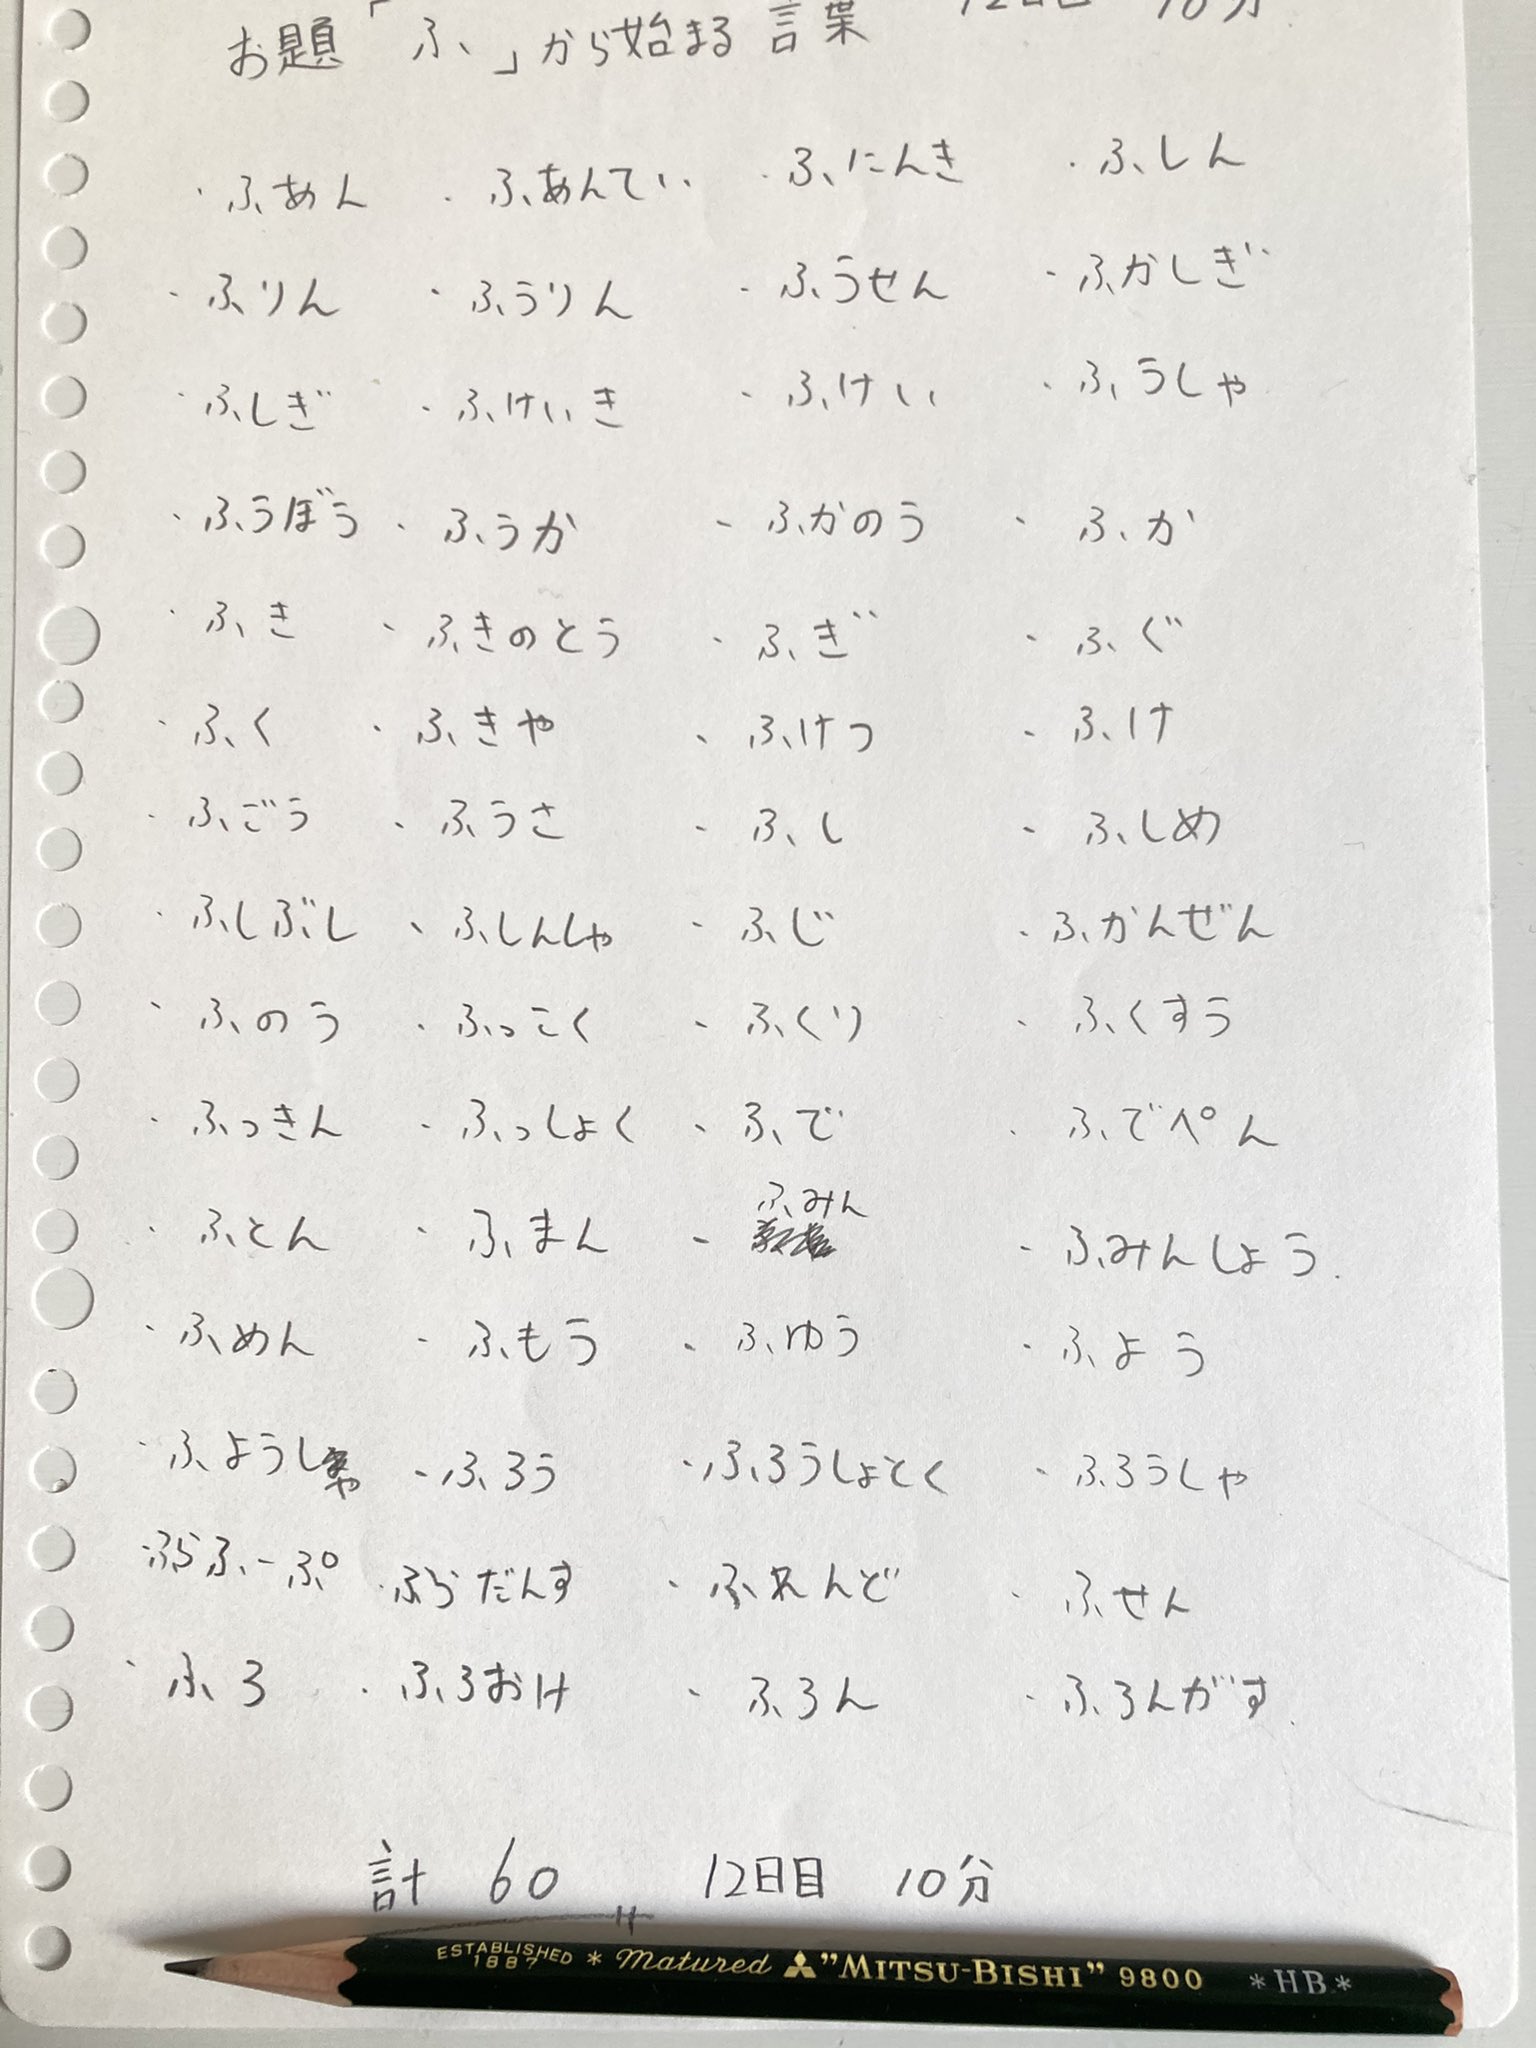 お題「ふ」から始まる言葉 12日目 10分
・ふあん ・ふあんてい ・ふにんき ・ふしん
・ふりん ・ふうりん ・ふうせん ・ふかしぎ
・ふしぎ ・ふけいき ・ふけい ・ふうしゃ
・ふうぼう ・ふうか ・ふかのう ・ふか
・ふき ・ふきのとう ・ふぎ ・ふぐ
・ふく ・ふきや ・ふけつ ・ふけ
・ふごう ・ふうさ ・ふし ・ふしめ
・ふしぶし ・ふしんしゃ ・ふじ ・ふかんぜん
・ふのう ・ふっこく ・ふくり ・ふくすう
・ふっきん ・ふっしょく ・ふで ・ふでぺん
・ふとん ・ふまん ・ふみん ・ふみんしょう
・ふめん ・ふもう ・ふゆう ・ふよう
・ふようしゃ ・ふろう ・ふろうしょとく ・ふろうしゃ
・ふらふーぷ ・ふらだんす ・ふれんど ・ふせん
・ふろ ・ふろおけ ・ふろん ・ふろんがす
計 60 12日目 10分
ESTABLISHED 1887 * Matured "MITSU-BISHI" 9800 *HB*